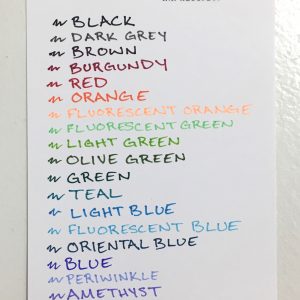 BLACK
DARK GREY
BROWN
BURGUNDY
RED
ORANGE
FLUORESCENT ORANGE
FLUORESCENT GREEN
LIGHT GREEN
OLIVE GREEN
GREEN
TEAL
LIGHT BLUE
FLUORESCENT BLUE
ORIENTAL BLUE
BLUE
PERIWINKLE
AMETHYST